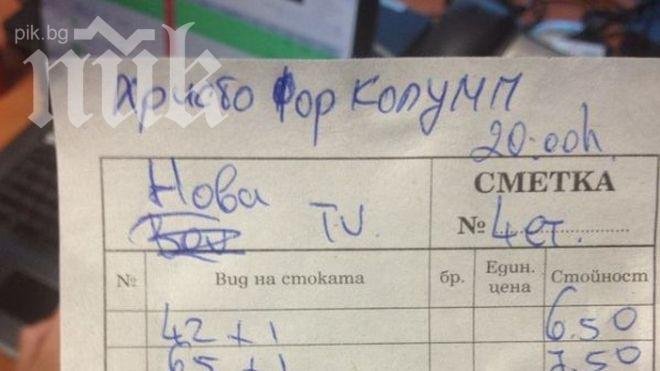 pik.bg
пик
Христо Фор Колумп
20:00h
Нова T.V.
СМЕТКА
№ 4 ет.
№ Вид на стоката бр. Един. цена Стойност
42 + 1 6.50
65 + 1 7.50